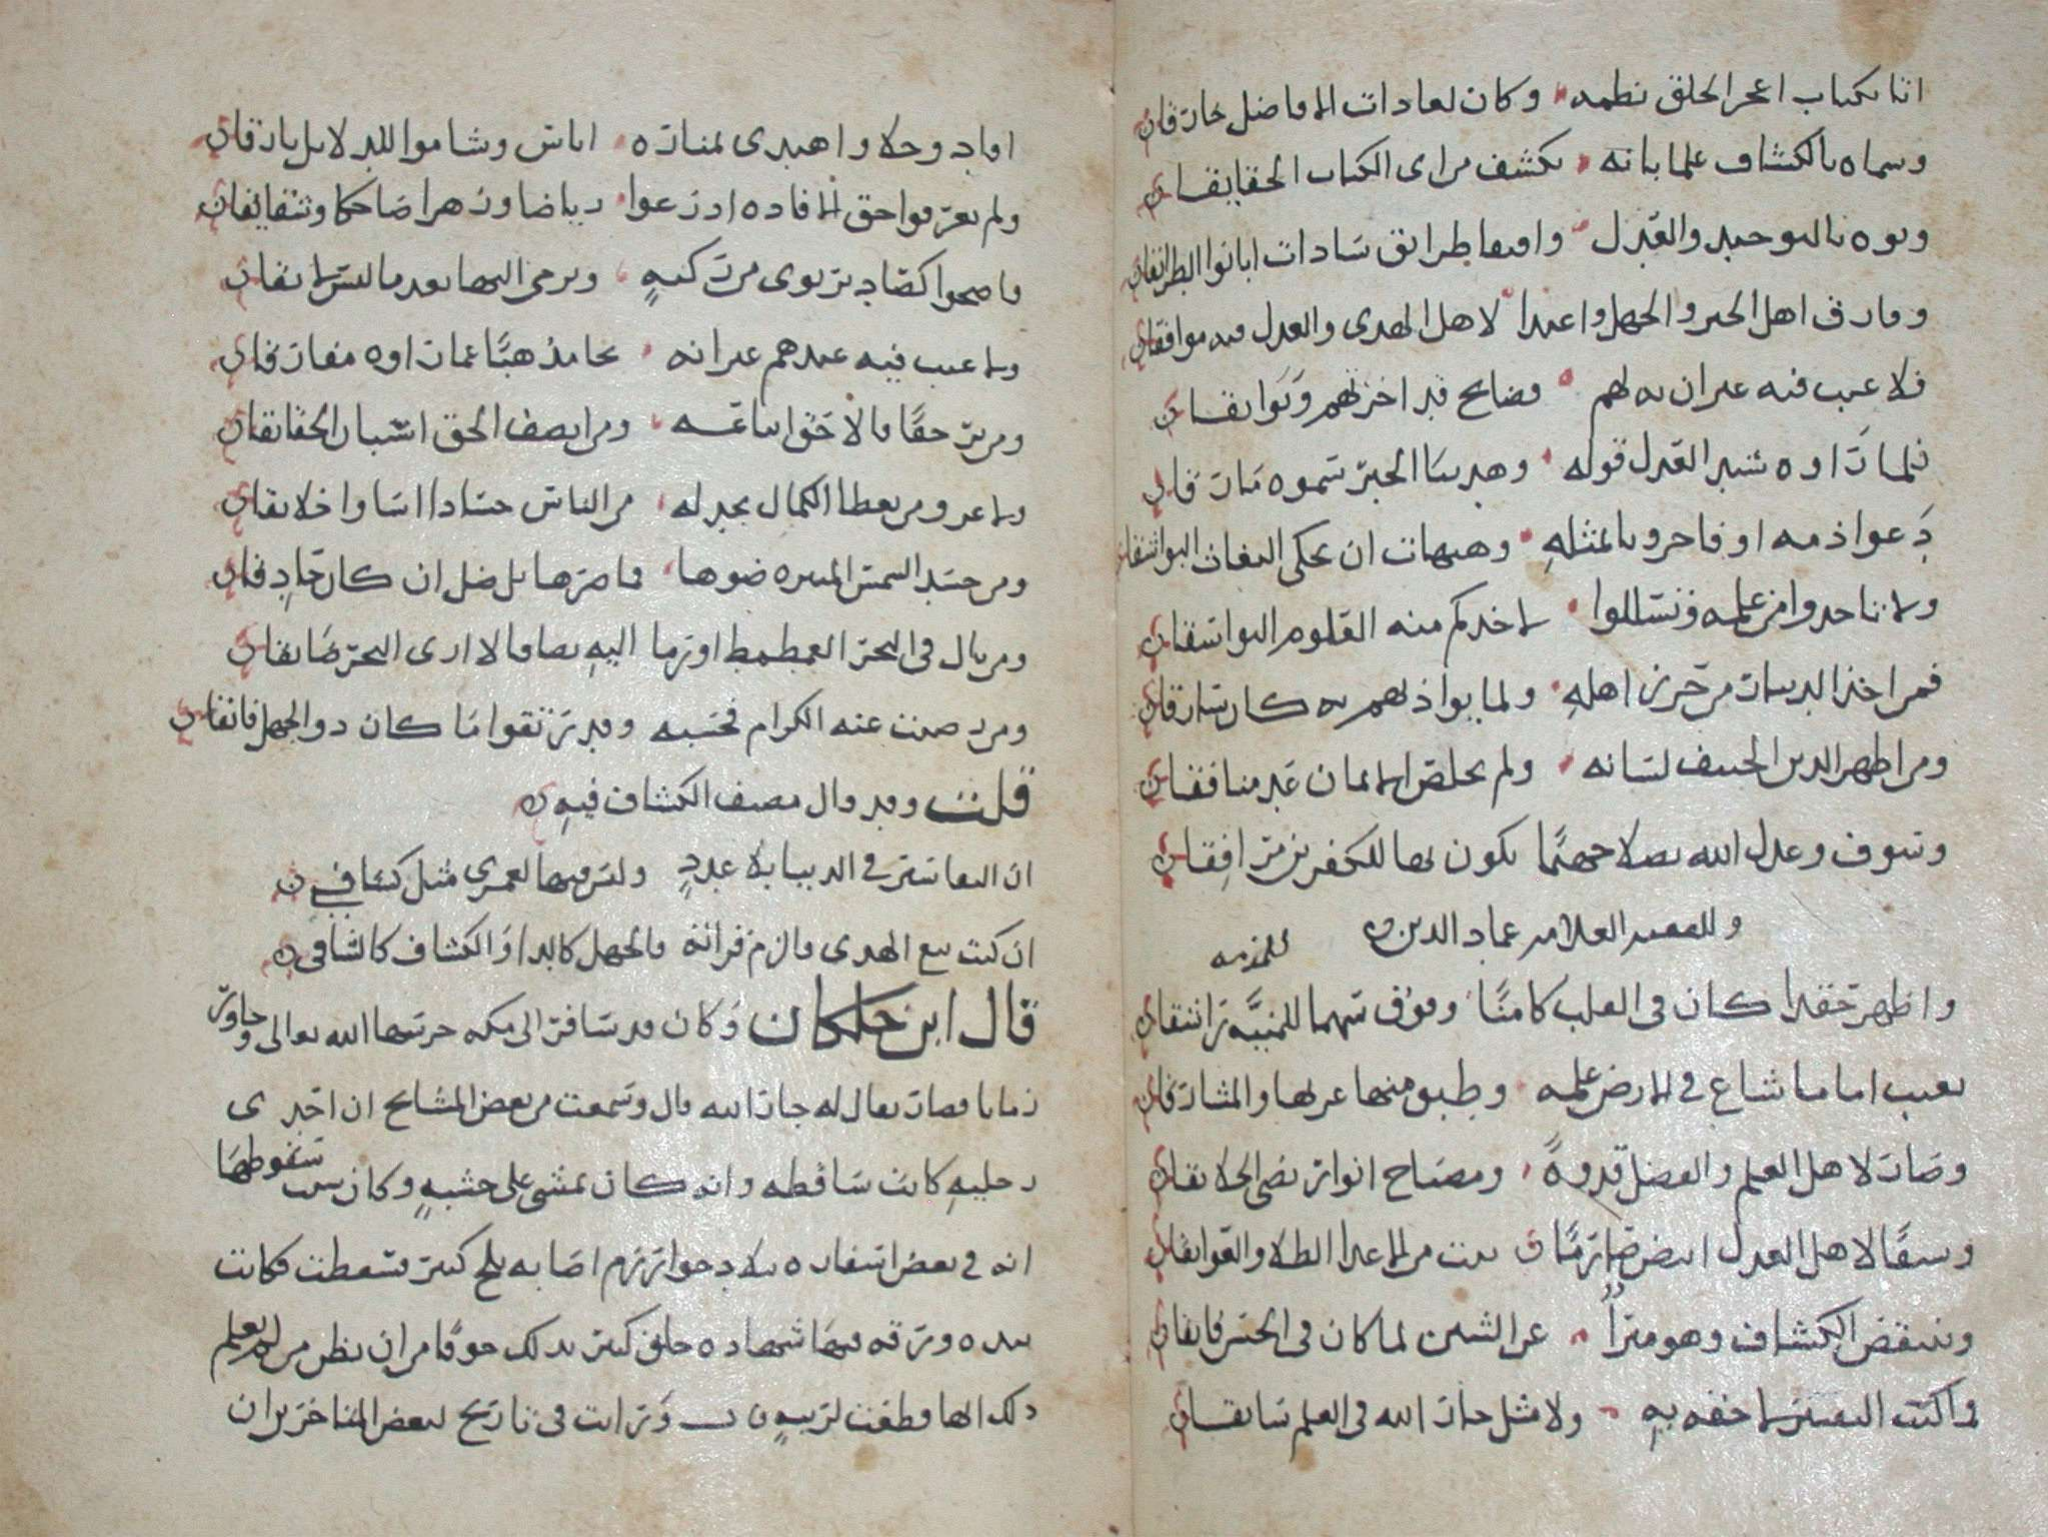 اتا بكتاب اعجز الخلق نظمه وكان لعادات الافاضل خارقا
وسماه بالكشاف علما بانه يكشف من اى الكتاب الحقايقا
ونوه بالتوحيد والعدل واقتفا طرايق سادات ابانوا الطرايقا
وفارق اهل الجبر والجهل واغتدا لاهل الهدى والعدل فيه موافقا
فلا عيب فيه غير ان به لهم فضايح قد اخزتهم وبوايقا
فلما راوه شيد العدل قوله وهد بنا الجبر سموه مارقا
دعوا ذمه او فاخرونا بمثله وهيهات ان يحكى البغاث البواشقا
ولا تاخذوا من علمه فتسللوا لاخذكم منه العلوم البواسقا
فمن اخذ الدينار من حرز اهله ولما يواذنهم به كان سارقا
ومن اظهر الدين الحنيف لسانه ولم يخلص الايمان عد منافقا
وسوف وعدل الله يصلا جهنما يكون بها للكفرين مرافقا
وللفقيه العلامه عماد الدين
واظهر حقدا كان فى القلب كامنا وفوق سهما للمنية راشقا
يعيب اماما شاع فى الارض علمه وطبق منها غربها والمشارقا
وصار لاهل العلم والفضل قدوة ومصباح انوار يضى الخلايقا
وسيفا لاهل العدل ابيض صارما من الاعدا الطلا والعواتقا
وينتقض الكشاف وهو مبرا عن الشين لما كان فى الحسن فايقا
وما كتب التفسير الا خفه به ولا مثل جار الله فى العلم سابقا
افاد وجلا واهتدى بمناره اناس وشاموا للدلايل بارقا
ولم يعرفوا حق الافاده اذ رعوا رياضا وزهرا ضاحكا وشقايقا
فاضحوا كصاد يرتوى من ركية ويرمى اليها بعد ما
ولا عيب فيه عندهم غير انه محا مذهبا عما راوه مفارقا
ومن ير حقا فالاحق اتباعه ومن ينصف الحق استبان الحقايقا
ولا غرو من يعطا الكمال يجد له من الناس حسادا اساوا خلايقا
ومن حسد الشمس المنيره ضوها فما ضرها بل ضل ان كان حاذقا
ومن بال فى البحر الغطمط او رما اليه بصاقا لا ارى البحر ضايقا
ومن رضيت عنه الكرام فحسبه وقد رتقوا ما كان ذو الجهل فاتقا
قلت وقد قال مصنف الكشاف فيه
ان التفاسير فى الدنيا بلا عدد وليس فيها لعمرى مثل كشافى
ان كنت تبغ الهدى فالزم قراته فالجهل كالدا والكشاف كالشافى
قال ابن خلكان وكان قد سافر الى مكه حرسها الله تعالى وجاور
زمانا فصار يقال له جار الله قال وسمعت من بعض المشايخ ان احدى
رجليه كانت ساقطه وانه كان يمشى على خشبه وكان سبب سقوطها
انه فى بعض اسفاره ببلاد خوارزم اصابه ثلج كثير فسقطت فكانت
بيده ورقه فيها شهاده خلق كثير بذلك خوفا من ان يظن من لم يعلم
ذلك انها قطعت لريبه ورايت فى تاريخ لبعض المتاخرين ان